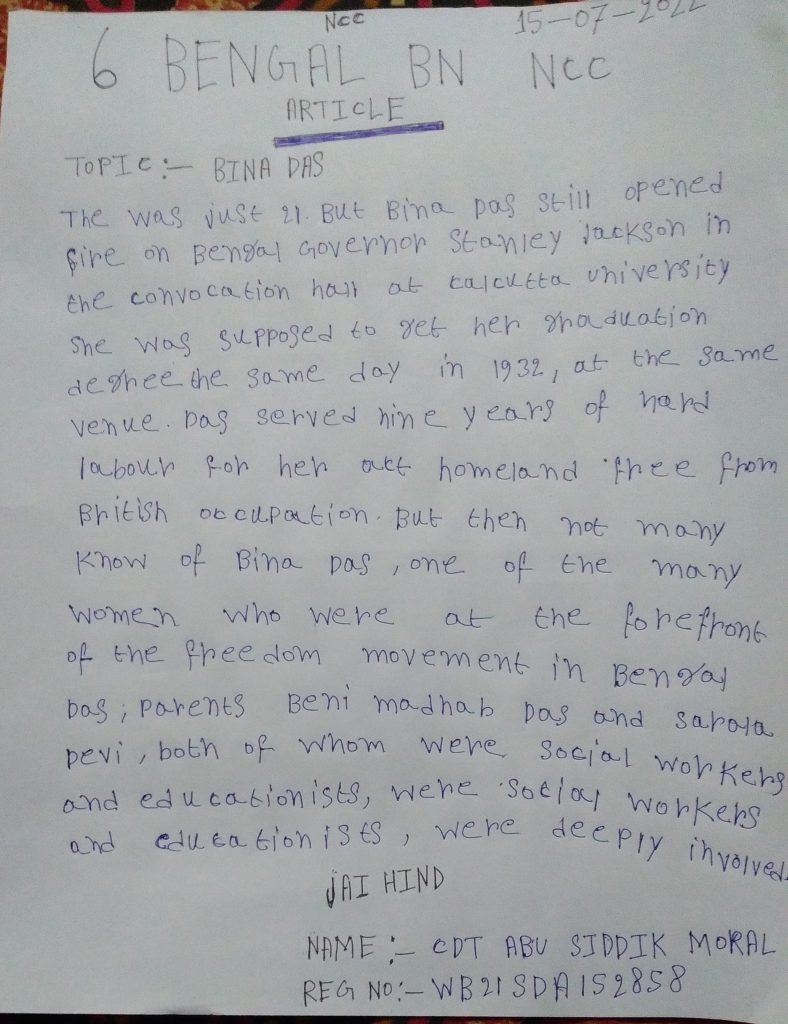 NCC
15-07-2022
6 BENGAL BN NCC
ARTICLE
TOPIC :- BINA DAS
The was just 21. But Bina Das still opened
fire on Bengal Governor Stanley Jackson in
the convocation hall at calcutta university
She was supposed to get her graduation
degree the same day in 1932, at the same
venue. Das served nine years of hard
labour for her act homeland free from
British occupation. But then not many
Know of Bina Das, one of the many
women who were at the forefront
of the freedom movement in Bengal
Das; parents Beni madhab Das and sarala
Devi, both of whom were social workers
and educationists, were social workers
and educationists, were deeply involved.
JAI HIND
NAME :- CDT ABU SIDDIK MORAL
REG NO:- WB21SDA152858